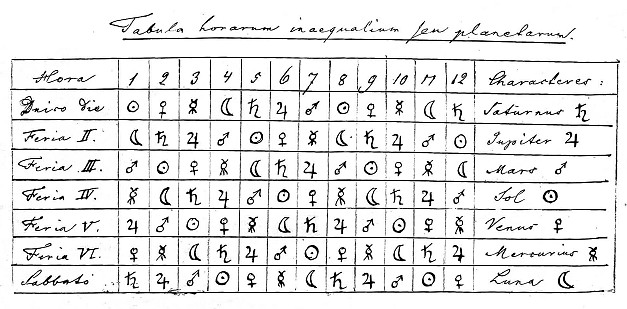 Tabula horarum inaequalium seu planetarum.
Hora 1 2 3 4 5 6 7 8 9 10 11 12 Characteres:
Dnico die ☉ ♀ ☿ ☾ ♄ ♃ ♂ ☉ ♀ ☿ ☾ ♄ Saturnus ♄
Feria II. ☾ ♄ ♃ ♂ ☉ ♀ ☿ ☾ ♄ ♃ ♂ ☉ Jupiter ♃
Feria III. ♂ ☉ ♀ ☿ ☾ ♄ ♃ ♂ ☉ ♀ ☿ ☾ Mars ♂
Feria IV. ☿ ☾ ♄ ♃ ♂ ☉ ♀ ☿ ☾ ♄ ♃ ♂ Sol ☉
Feria V. ♃ ♂ ☉ ♀ ☿ ☾ ♄ ♃ ♂ ☉ ♀ ☿ Venus ♀
Feria VI. ♀ ☿ ☾ ♄ ♃ ♂ ☉ ♀ ☿ ☾ ♄ ♃ Mercurius ☿
Sabbato ♄ ♃ ♂ ☉ ♀ ☿ ☾ ♄ ♃ ♂ ☉ ♀ Luna ☾